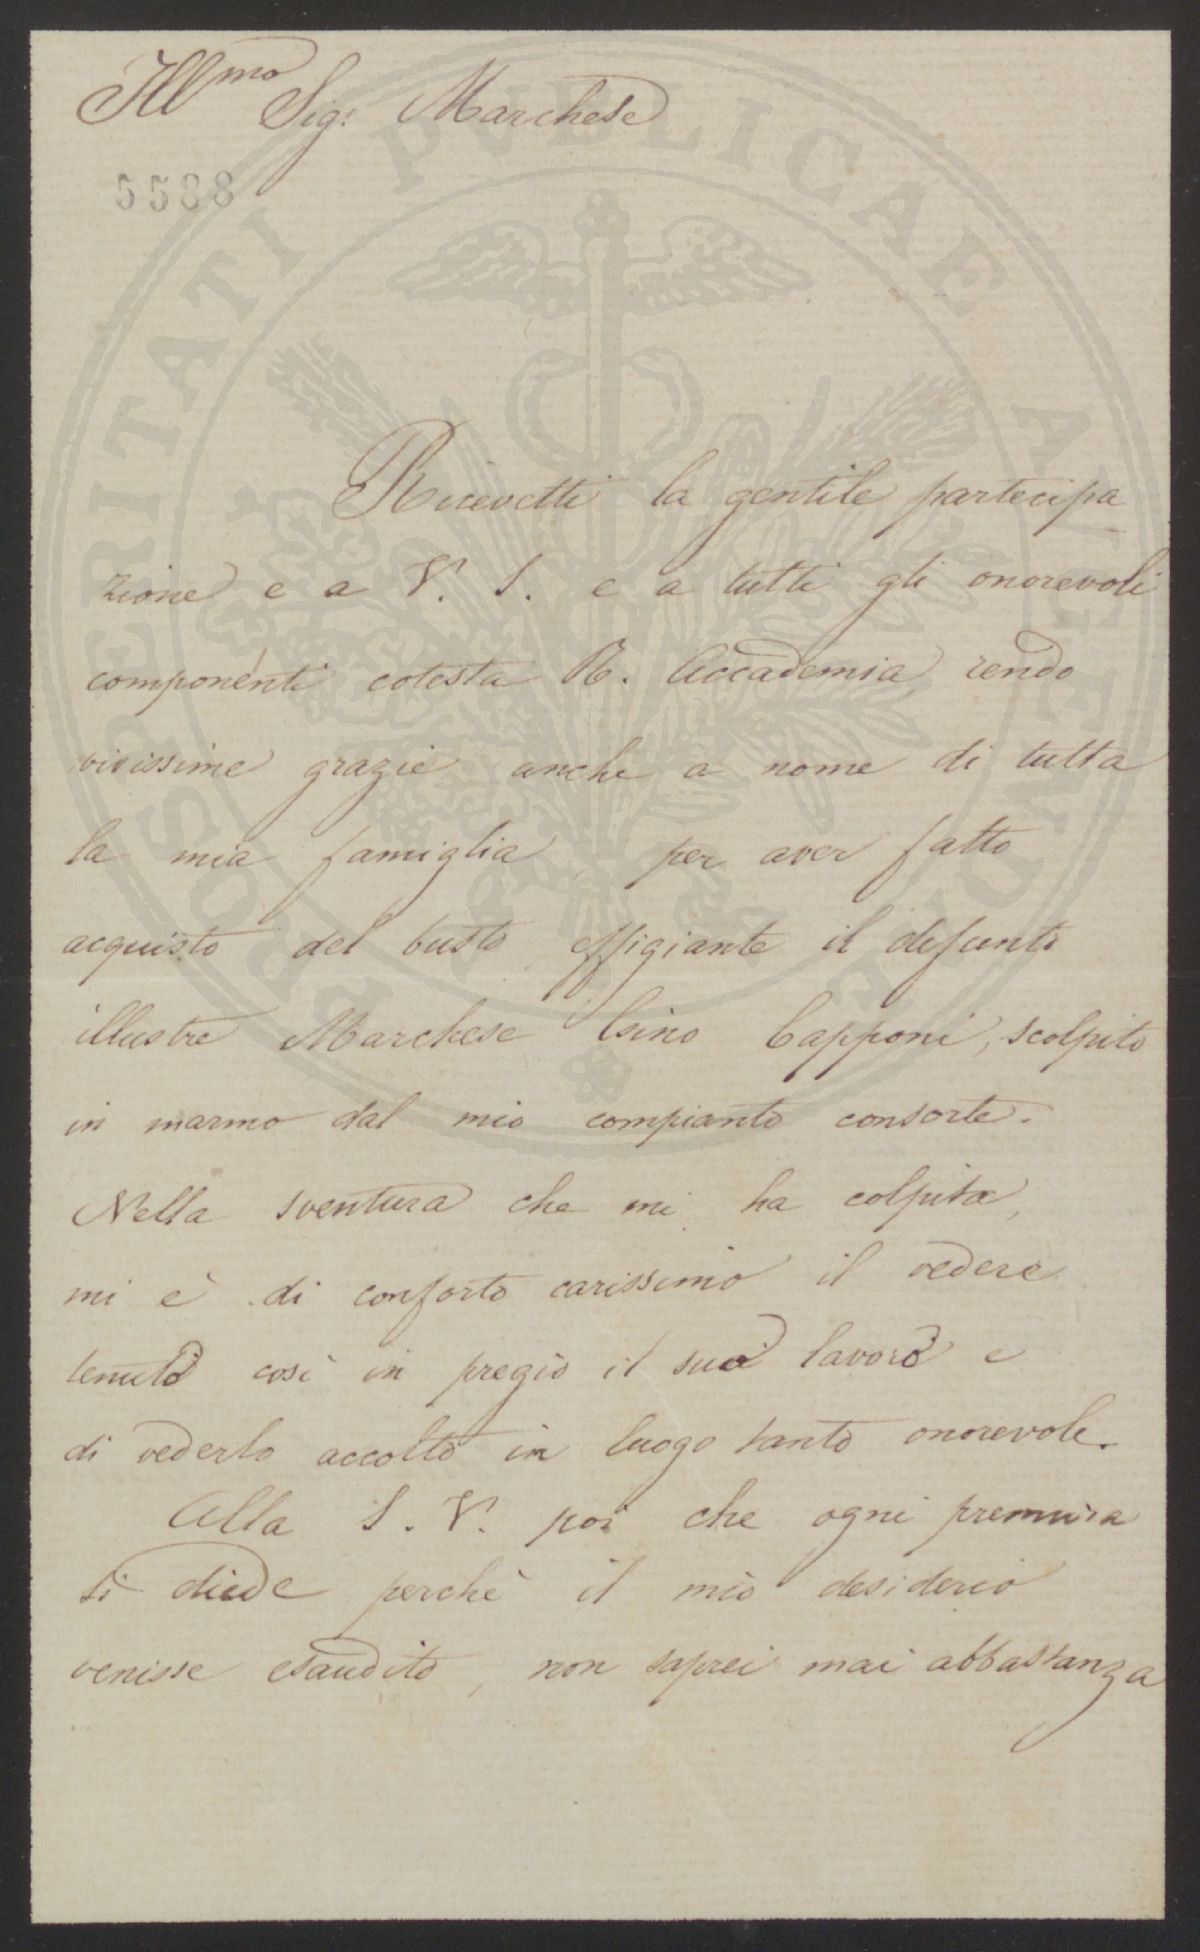 Ill^mo Sig.^r Marchese
5588
Ricevetti la gentile partecipa
zione e a V. S. e a tutti gli onorevoli
componenti cotesta R. Accademia, rendo
vivissime grazie anche a nome di tutta
la mia famiglia, per aver fatto
acquisto del busto effigiante il defunto
illustre Marchese Gino Capponi, scolpito
in marmo dal mio compianto consorte.
Nella sventura che mi ha colpita,
mi è di conforto carissimo il vedere
tenuto così in pregio il suo lavoro e
di vederlo accolto in luogo tanto onorevole.
Alla S. V. poi che ogni premura
si diede perchè il mio desiderio
venisse esaudito, non saprei mai abbastanza
PROSPERITATI PVBLICAE AVGENDAE